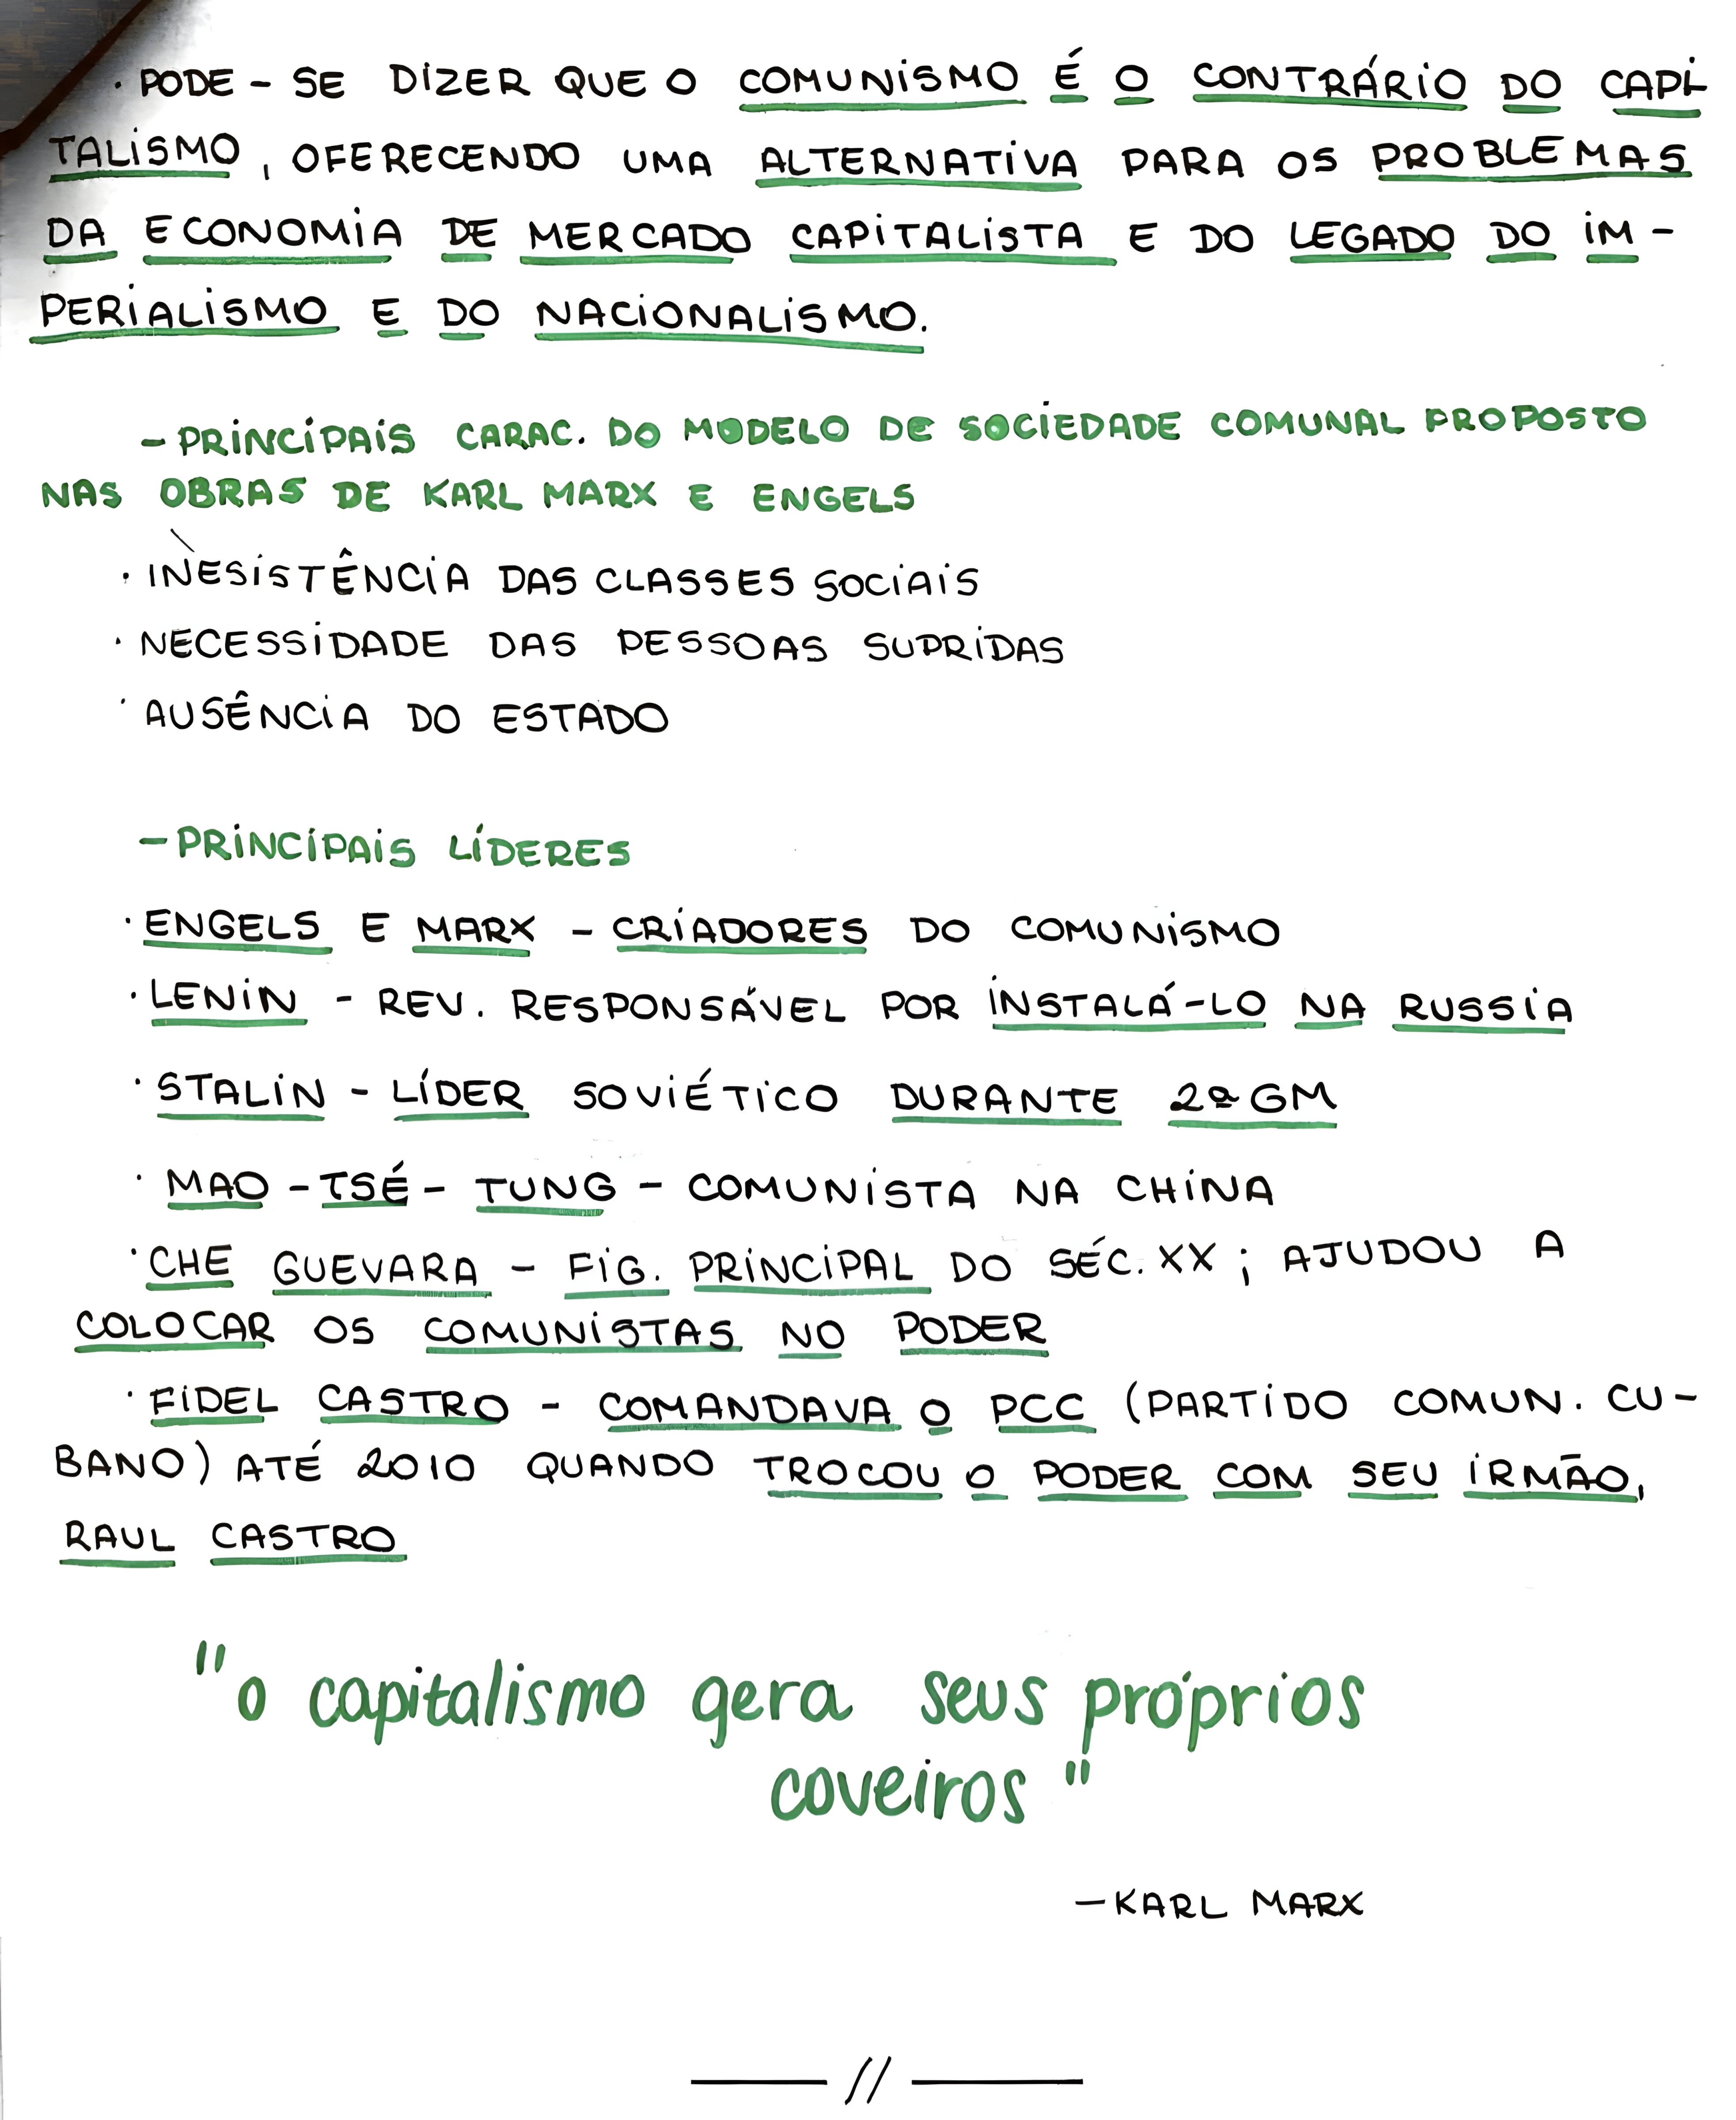 · PODE - SE DIZER QUE O COMUNISMO É O CONTRÁRIO DO CAPI
TALISMO, OFERECENDO UMA ALTERNATIVA PARA OS PROBLEMAS
DA ECONOMIA DE MERCADO CAPITALISTA E DO LEGADO DO IM-
PERIALISMO E DO NACIONALISMO.
- PRINCIPAIS CARAC. DO MODELO DE SOCIEDADE COMUNAL PROPOSTO
NAS OBRAS DE KARL MARX E ENGELS
· INESISTÊNCIA DAS CLASSES SOCIAIS
· NECESSIDADE DAS PESSOAS SUPRIDAS
· AUSÊNCIA DO ESTADO
- PRINCIPAIS LÍDERES
· ENGELS E MARX - CRIADORES DO COMUNISMO
· LENIN - REV. RESPONSÁVEL POR INSTALÁ-LO NA RUSSIA
· STALIN - LÍDER SOVIÉTICO DURANTE 2ª GM
· MAO - TSÉ - TUNG - COMUNISTA NA CHINA
· CHE GUEVARA - FIG. PRINCIPAL DO SÉC. XX ; AJUDOU A
COLOCAR OS COMUNISTAS NO PODER
· FIDEL CASTRO - COMANDAVA O PCC (PARTIDO COMUN. CU-
BANO) ATÉ 2010 QUANDO TROCOU O PODER COM SEU IRMÃO,
RAUL CASTRO
"o capitalismo gera seus próprios
coveiros"
- KARL MARX
—— // ——